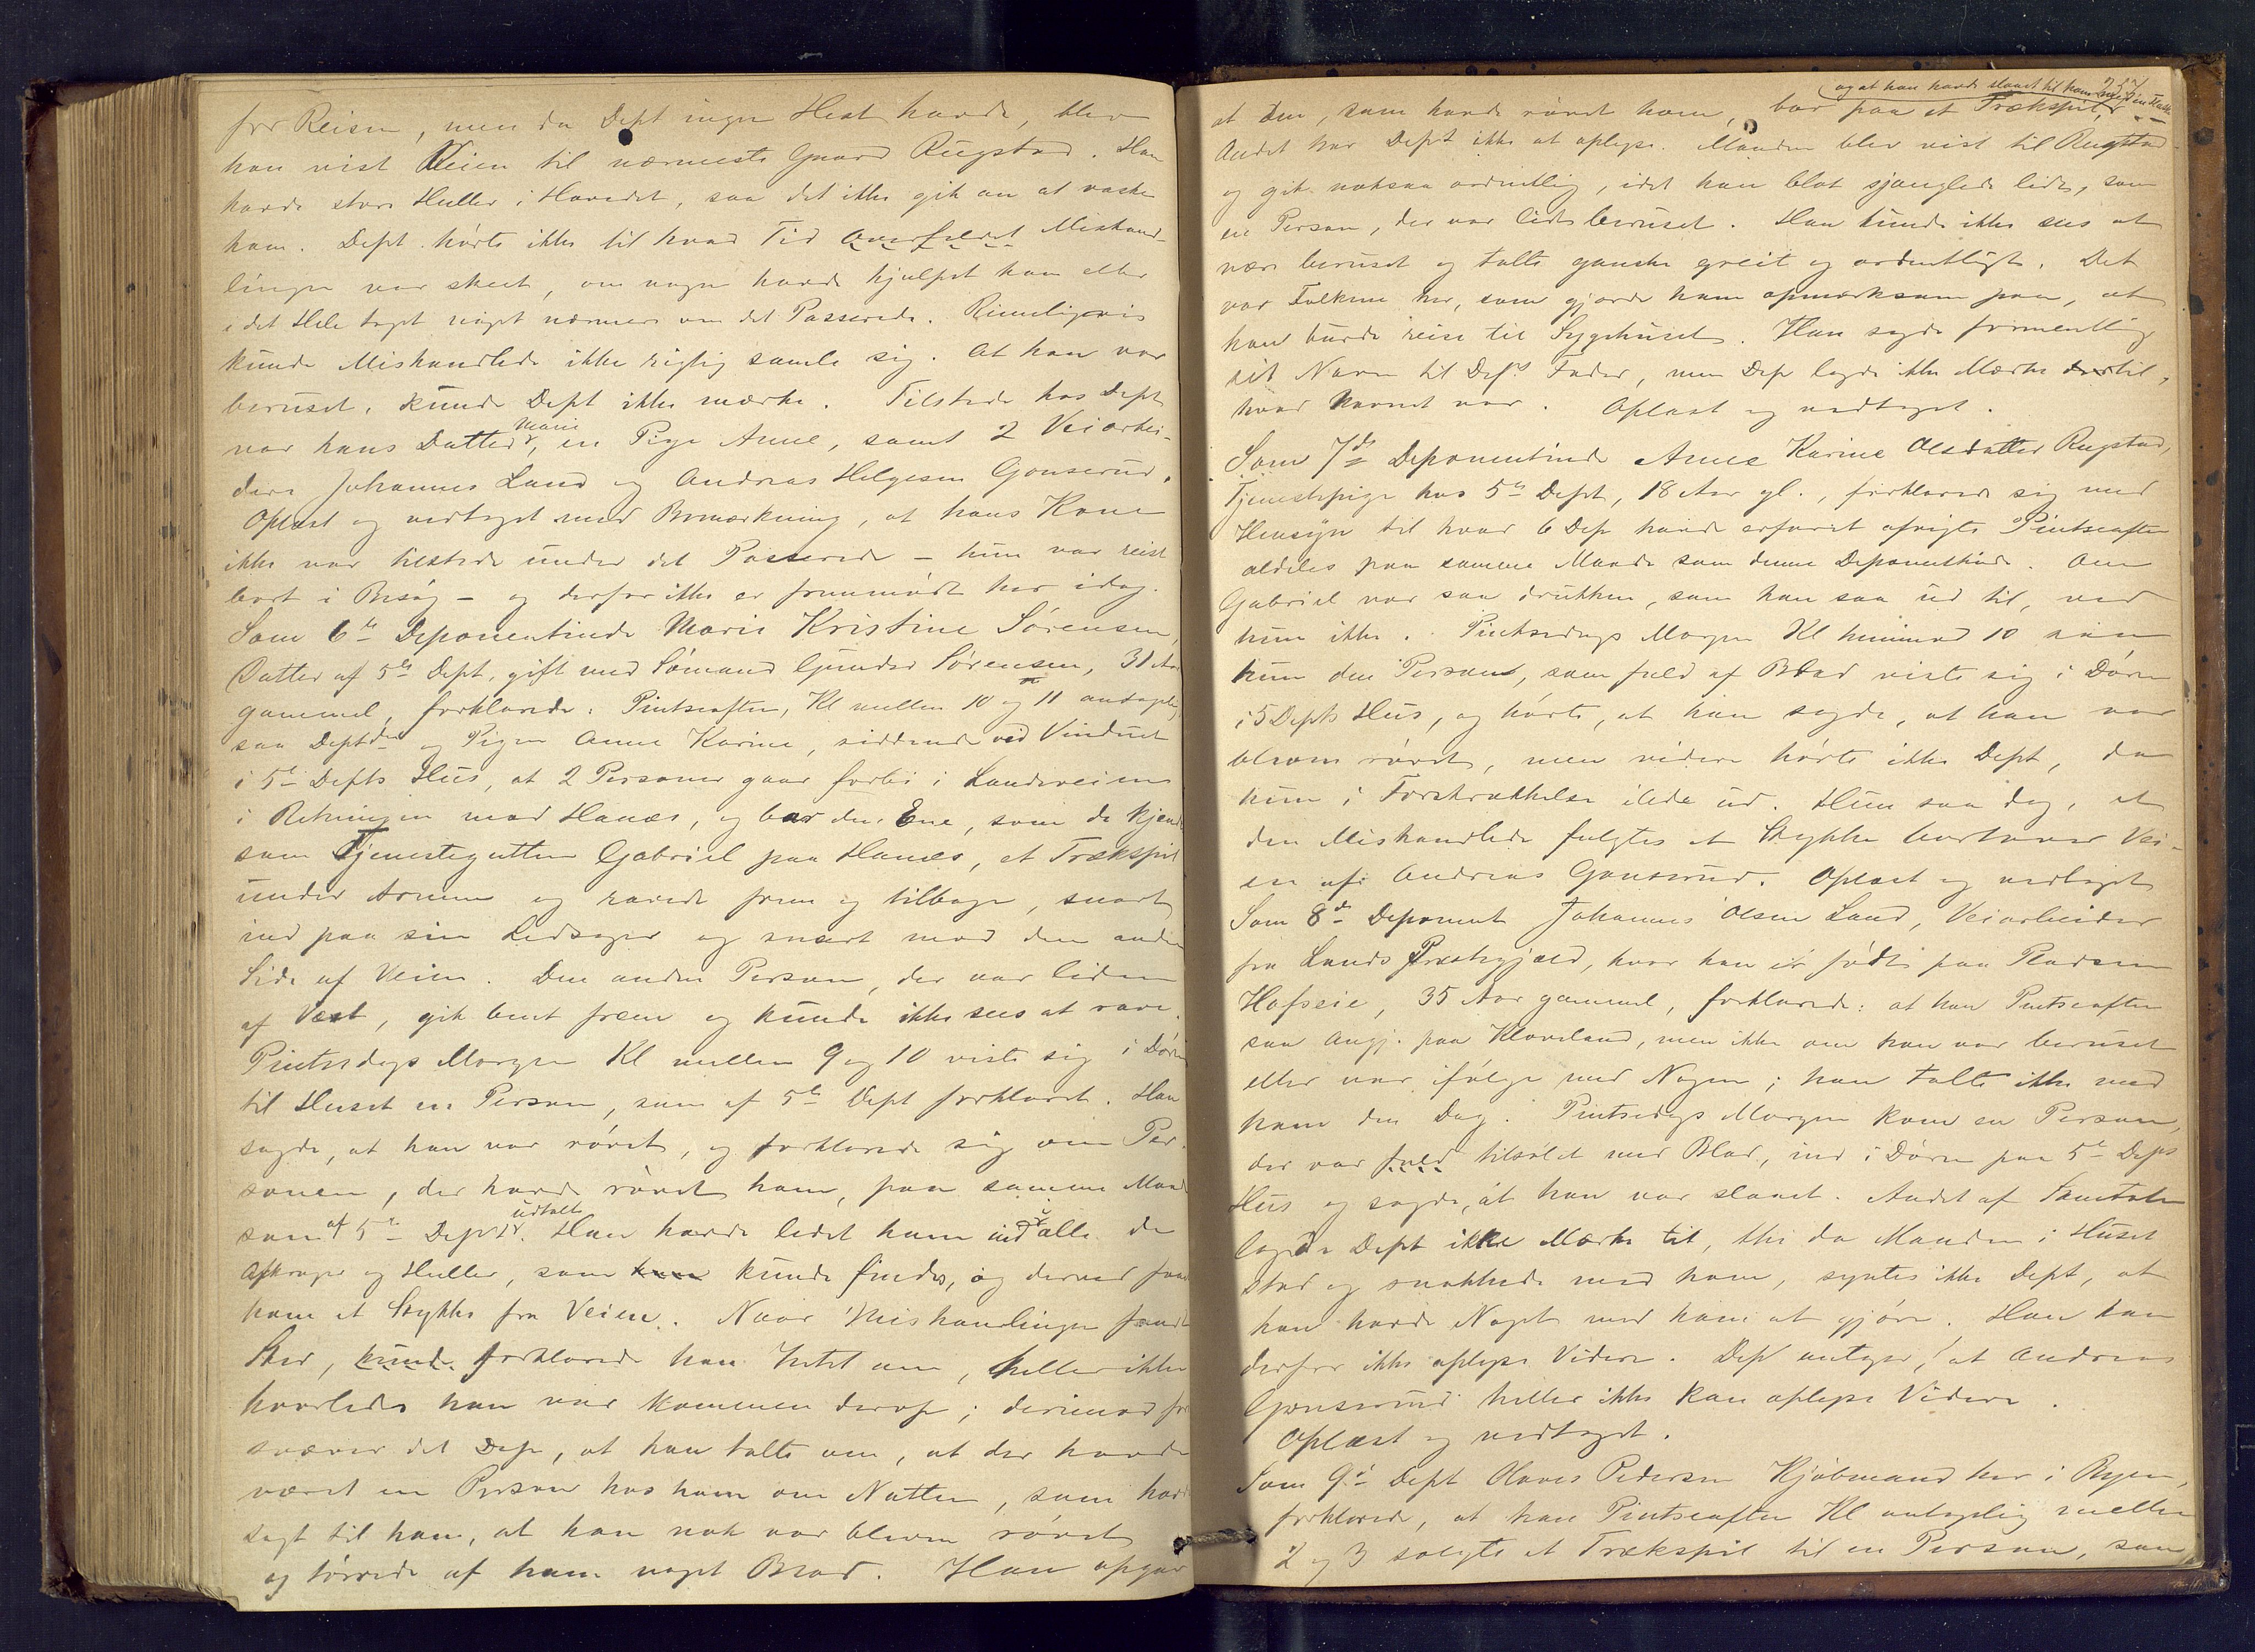 for Reisen, men da Dept ingen Hest havde, blev
han vist Veien til nærmeste Gaard Rugstad. Han
havde store Huller i Hovedet, saa det ikke gik an at vaske
ham. Dept. hørte ikke til hvad Tid Overfaldet Mishand-
lingen var skeet, om nogen havde hjulpet ham eller
i det Hele taget noget nærmere om det Passerede. Rimeligvis
kunde Mishandlede ikke rigtig samle sig. At han var
beruset, kunde Dept ikke mærke. Tilstede hos Dept
var hans Datter Marie, en Pige Anne, samt 2 Veiarbei-
dere Johannes Land og Andreas Helgesen Gonserud.
Oplæst og vedtaget med Bemærkning, at hans Kone
ikke var tilstede under det Passerede – hun var reist
bort i Besøg – og derfor ikke er fremmødt her idag.
Som 6te Deponentinde Marie Kristine Sørensen,
Datter af 5te Dept, gift med Sømand Gunder Sørensen, 31 Aar
gammel, forklarede: Pintseaften, Kl mellem 10 og 11 antagelig
saa Deptden og Pigen Anne Karine, siddende ved Vinduet
i 5te Depts Hus, at 2 Personer gaar forbi i Landeveien
i Retningen mod Hanæs, og bar den Ene, som de kjendte
som Tjenestegutten Gabriel paa Hanæs, et Trækspil
under Armen og ravede frem og tilbage, snart
ind paa sin Ledsager og snart mod den anden
Side af Veien. Den anden Person, der var liden
af Vext, gik bent frem og kunde ikke sees at rave.
Pintsedags Morgen Kl mellem 9 og 10 viste sig i Døren
til Huset en Person, som af 5te Dept forklaret. Han
sagde, at han var røvet, og forklarede sig om Per-
sonen, der havde røvet ham, paa samme Maade
som af 5te Dept udtalt. Han havde ledet ham ind i alle de
Afkroger og Huller, som kunde findes, og derved faaet
ham et Stykke fra Veien. Naar Mishandlingen fandt
Sted, kunde forklarede han Intet om, heller ikke
hvorledes han var kommen derop; derimod for
svæver det Dept, at han talte om, at der havde
været en Person hos ham om Natten, som havde
sagt til ham, at han nok var bleven røvet
og tørrede af ham noget Blod. Han opgav
og at han havde slaaet til ham med en Flaske
at den, som havde røvet ham, bar paa et Trækspil,
Andet har Dept ikke at oplyse. Manden blev vist til Rugstad
og gik noksaa ordentlig, idet han blot sjanglede lidt, som
en Person, der var lidt beruset. Han kunde ikke sees at
være beruset og talte ganske greit og ordentligt. Det
var Folkene her, som gjorde ham opmærksom paa, at
han burde reise til Sygehuset. Han sagde formentlig
sit Navn til Depts Fader, men Dep lagde ikke Mærke dertil,
hvad Navnet var. Oplæst og vedtaget.
Som 7de Deponentinde Anne Karine Olsdatter Rugstad,
Tjenestepige hos 5te Dept, 18 Aar gl., forklarede sig med
Hensyn til hvad 6 Dep havde erfaret afvigte Pintseaften
aldeles paa samme Maade som denne Deponentinde. Om
Gabriel var saa drukken, som han saa ud til, ved
hun ikke. Pintsedags Morgen Kl henimod 10 saa
hun den Person, som fuld af Blod viste sig i Døren
i 5 Depts Hus, og hørte, at han sagde, at han var
bleven røvet, men videre hørte ikke Dept, da
hun i Forskrækkelse ilede ud. Hun saa dog, at
den Mishandlede fulgtes et Stykke bortover Vei-
en af Andreas Gonserud. Oplæst og vedtaget
Som 8de Deponent Johannes Olsen Land, Veiarbeider
fra Lands Præstegjæld, hvor han er født paa Pladsen
Hofseie, 35 Aar gammel, forklarede: at han Pintseaften
saa Angj. paa Kloveland, men ikke om han var beruset
eller var ifølge med Nogen; han talte ikke med
ham den Dag. Pintsedags Morgen kom en Person,
der var fuld tilsølet med Blod, ind i Døren paa 5te Depts
Hus og sagde, at han var slaaet. Andet af Samtalen
lagde Dept ikke Mærke til, thi da Manden i Huset
stod og snakkede med ham, syntes ikke Dept, at
han havde Noget med ham at gjøre. Han kan
derfor ikke oplyse Videre. Dept antager, at Andreas
Gonserud heller ikke kan oplyse Videre.
Oplæst og vedtaget.
Som 9de Dept Olaves Pedersen Kjøbmand her i Byen,
forklarede, at han Pintseaften Kl antagelig mellem
2 og 3 solgte et Trækspil til en Person, som